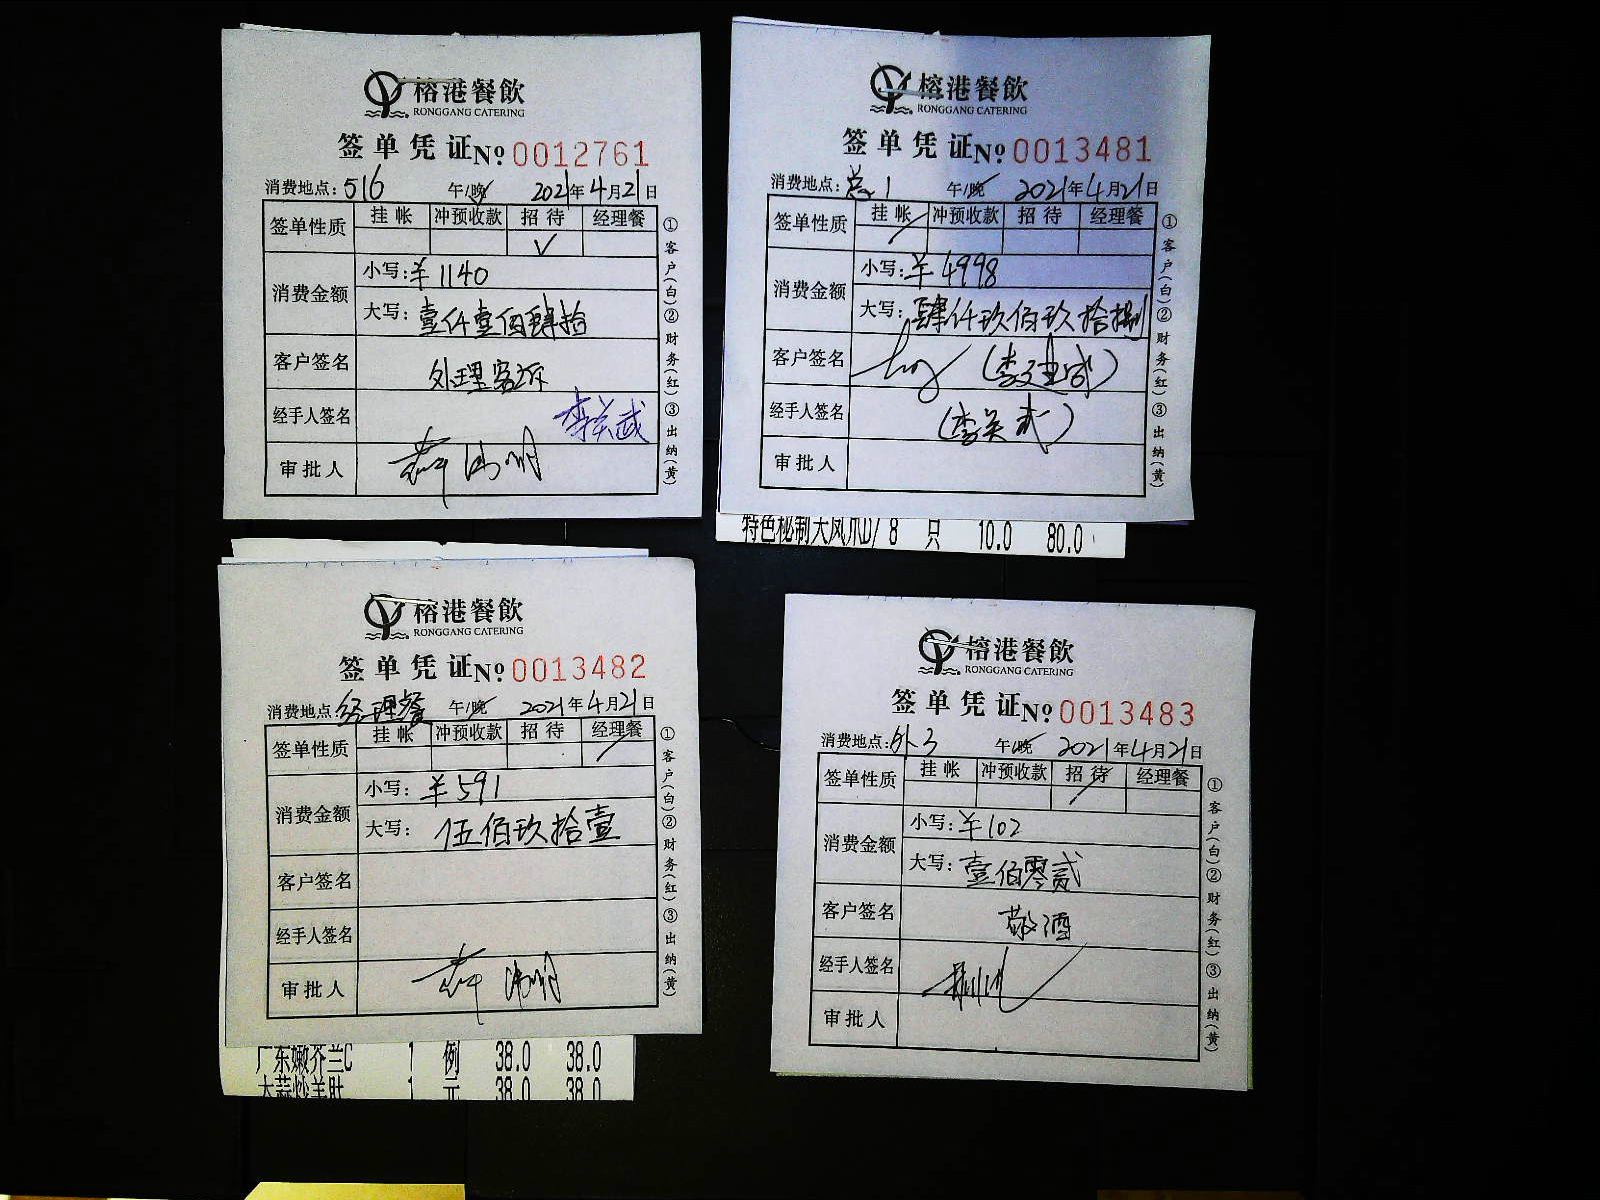 榕港餐飲
RONGGANG CATERING
签单凭证 No 0012761
消费地点：516 午/晚 2021年4月21日
签单性质 挂帐 冲预收款 招待 经理餐
√
消费金额 小写：¥1140
大写：壹仟壹佰肆拾
客户签名 处理客诉
经手人签名 李关武
审批人
①客户(白)②财务(红)③出纳(黄)
榕港餐飲
RONGGANG CATERING
签单凭证 No 0013481
消费地点：总1 午/晚 2021年4月21日
签单性质 挂帐 冲预收款 招待 经理餐
消费金额 小写：¥4998
大写：肆仟玖佰玖拾捌
客户签名 (李建成)
经手人签名 (李关武)
审批人
①客户(白)②财务(红)③出纳(黄)
特色秘制大凤爪D/ 8 只 10.0 80.0
榕港餐飲
RONGGANG CATERING
签单凭证 No 0013482
消费地点 经理餐 午/晚 2021年4月21日
签单性质 挂帐 冲预收款 招待 经理餐
消费金额 小写：¥591
大写：伍佰玖拾壹
客户签名
经手人签名
审批人
①客户(白)②财务(红)③出纳(黄)
广东嫩芥兰C 1 例 38.0 38.0
大蒜炒羊肚 1 元 38.0 38.0
榕港餐飲
RONGGANG CATERING
签单凭证 No 0013483
消费地点：外3 午/晚 2021年4月21日
签单性质 挂帐 冲预收款 招待 经理餐
消费金额 小写：¥102
大写：壹佰零贰
客户签名 敬酒
经手人签名
审批人
①客户(白)②财务(红)③出纳(黄)